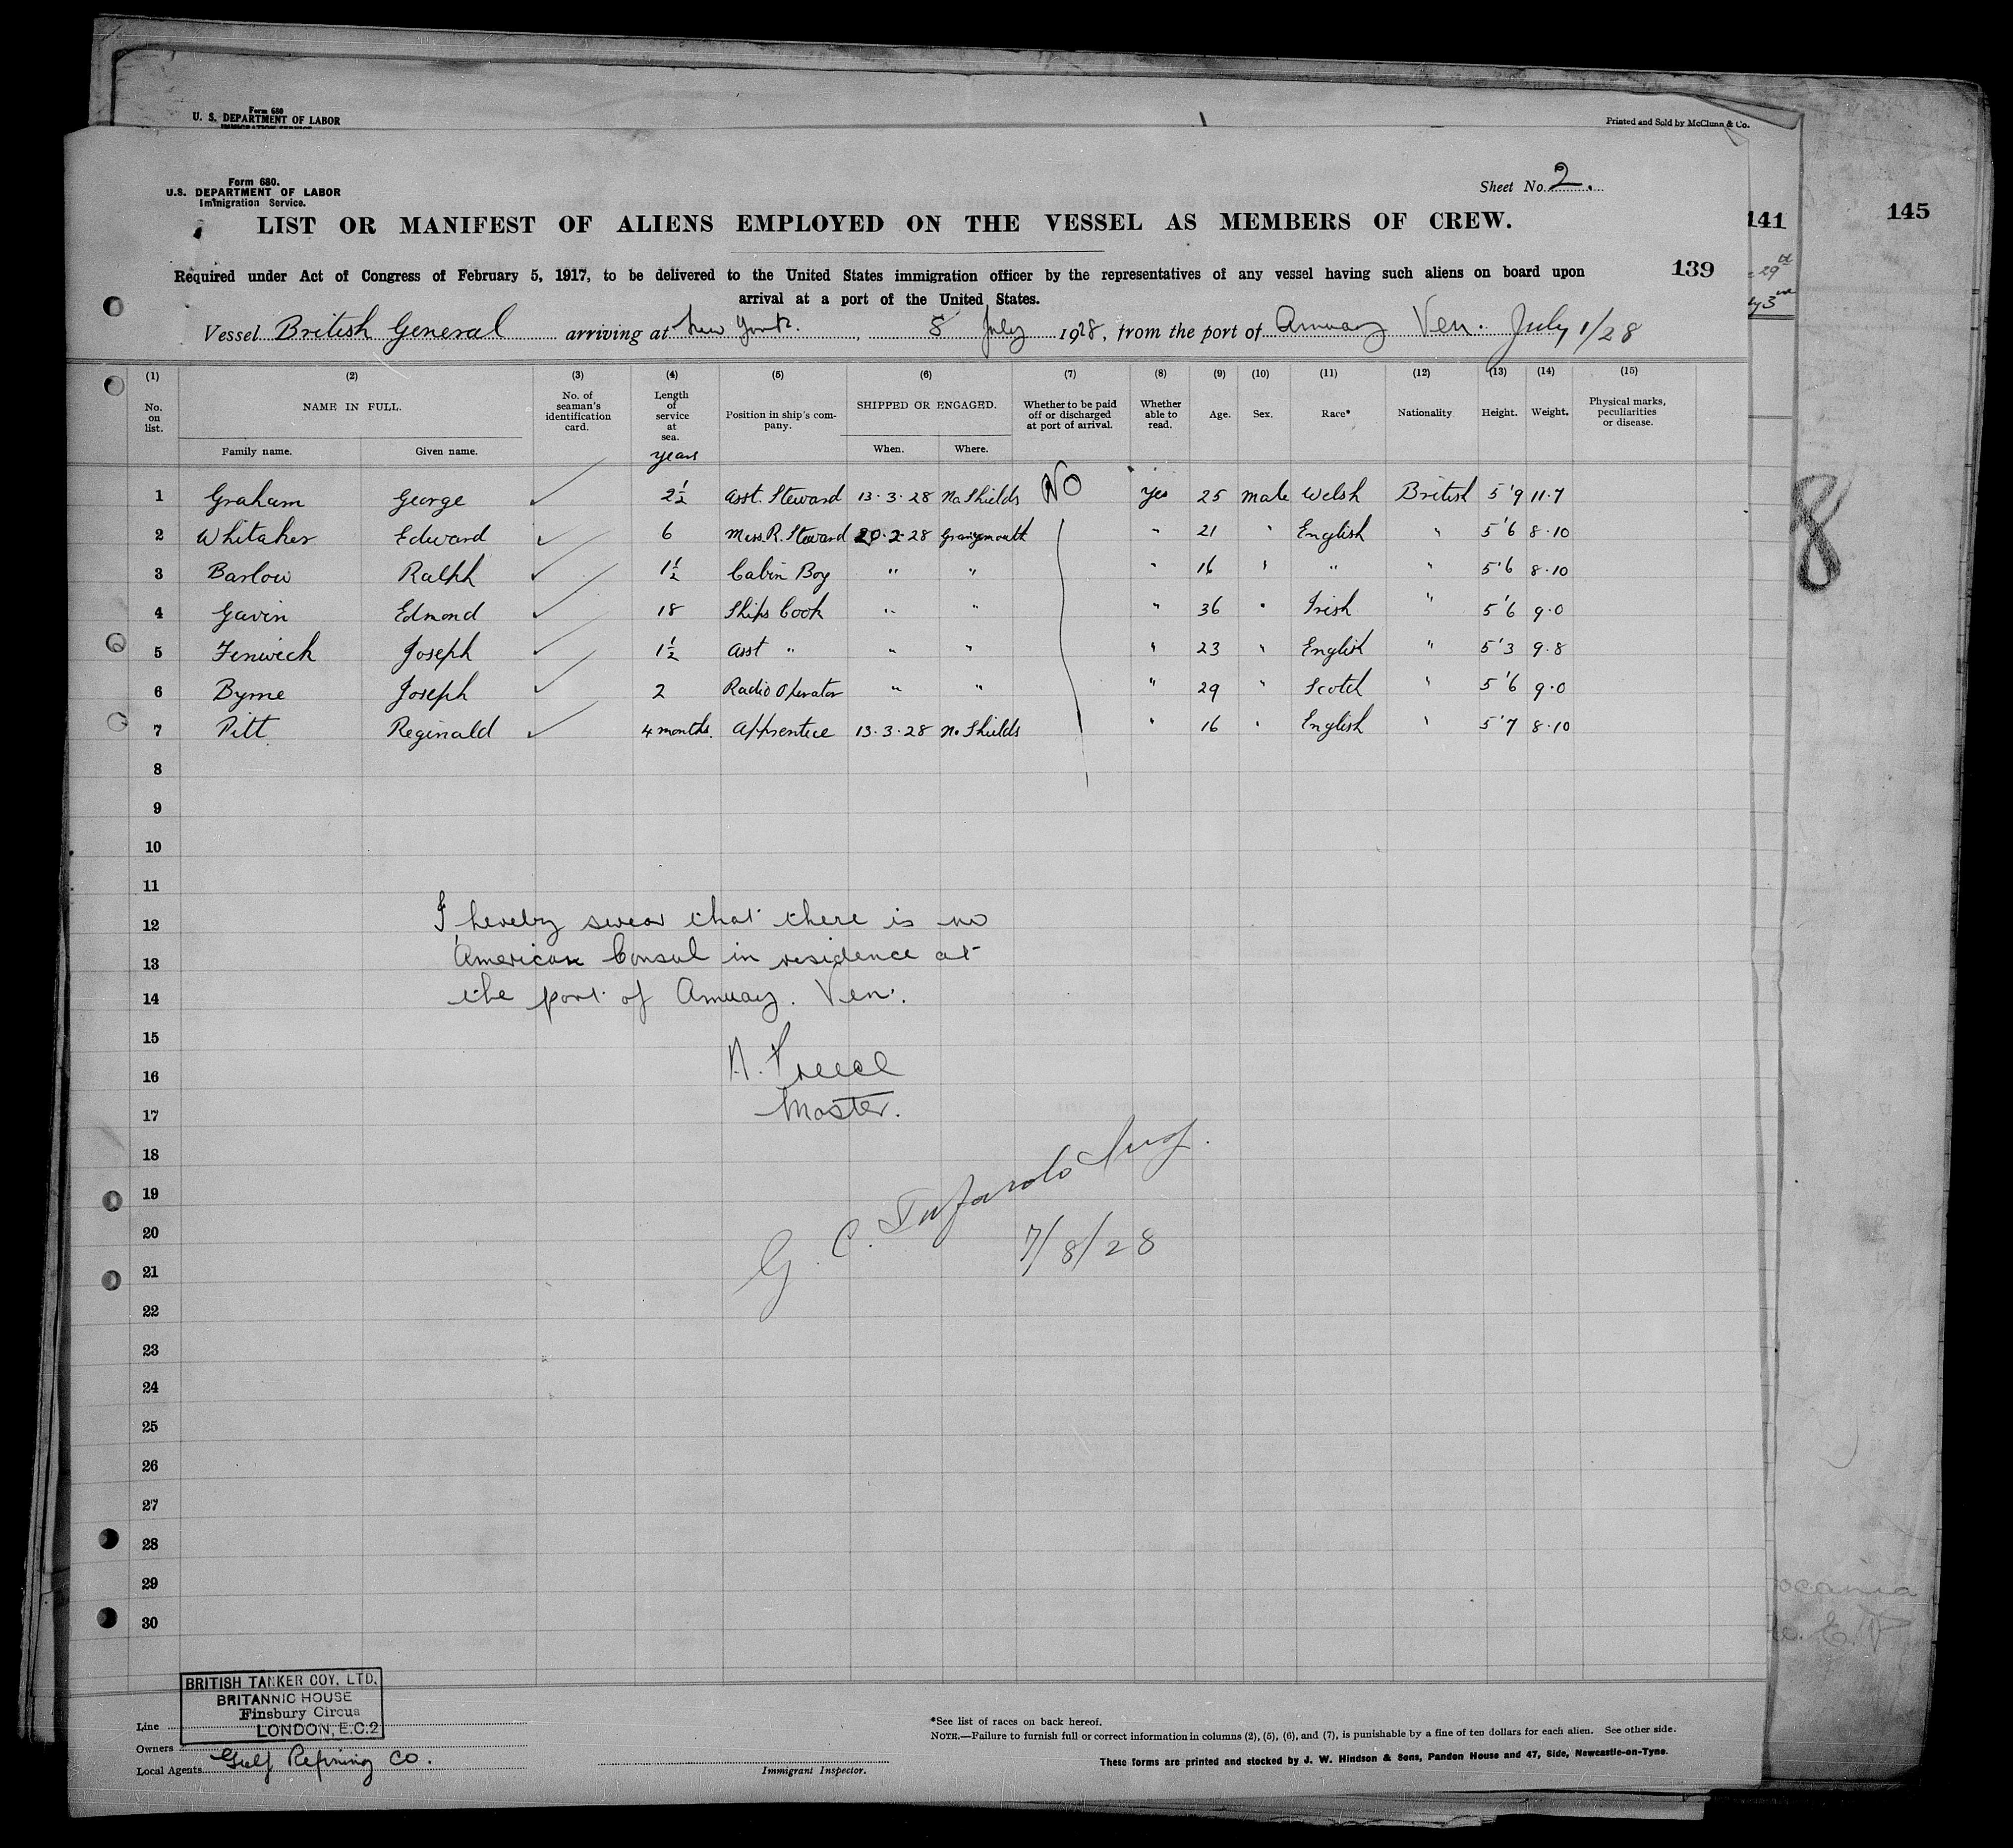 Form 680
U. S. DEPARTMENT OF LABOR
Printed and Sold by McClunn & Co.
Form 680.
U.S. DEPARTMENT OF LABOR
Immigration Service.
Sheet No. 2.
LIST OR MANIFEST OF ALIENS EMPLOYED ON THE VESSEL AS MEMBERS OF CREW.
141
145
Required under Act of Congress of February 5, 1917, to be delivered to the United States immigration officer by the representatives of any vessel having such aliens on board upon
arrival at a port of the United States.
139
29th
Vessel British General arriving at New York. , 8 July 1928, from the port of Amuay Ven. July 1/28
(1) (2) (3) (4) (5) (6) (7) (8) (9) (10) (11) (12) (13) (14) (15)
No. on list.
NAME IN FULL.
Family name. Given name.
No. of seaman's identification card.
Length of service at sea.
years
Position in ship's company.
SHIPPED OR ENGAGED.
When. Where.
Whether to be paid off or discharged at port of arrival.
Whether able to read.
Age. Sex. Race* Nationality Height. Weight.
Physical marks, peculiarities or disease.
1 Graham George ✓ 2½ Asst. Steward 13.3.28 No Shields NO yes 25 male Welsh British 5'9 11.7
2 Whitaker Edward ✓ 6 Mess. R. Steward 20.2.28 Grangemouth " 21 " English " 5'6 8.10
3 Barlow Ralph ✓ 1½ Cabin Boy " " " 16 " " " 5'6 8.10
4 Gavin Edmond ✓ 18 Ships Cook " " " 36 " Irish " 5'6 9.0
5 Fenwick Joseph ✓ 1½ Asst " " " " 23 " English " 5'3 9.8
6 Byrne Joseph ✓ 2 Radio Operator " " " 29 " Scotch " 5'6 9.0
7 Pitt Reginald ✓ 4 months. Apprentice 13.3.28 No Shields " 16 " English " 5'7 8.10
8
8
9
10
11
12
13
14
15
16
17
18
19
20
21
22
23
24
25
26
27
28
29
30
I hereby swear that there is no
American Consul in residence at
the port of Amuay. Ven.
Master.
7/8/28
BRITISH TANKER COY. LTD.
BRITANNIC HOUSE
Finsbury Circus
LONDON, E.C.2
Line
Owners
Local Agents Gulf Refining Co.
Immigrant Inspector.
*See list of races on back hereof.
NOTE.—Failure to furnish full or correct information in columns (2), (5), (6), and (7), is punishable by a fine of ten dollars for each alien. See other side.
These forms are printed and stocked by J. W. Hindson & Sons, Pandon House and 47, Side, Newcastle-on-Tyne.